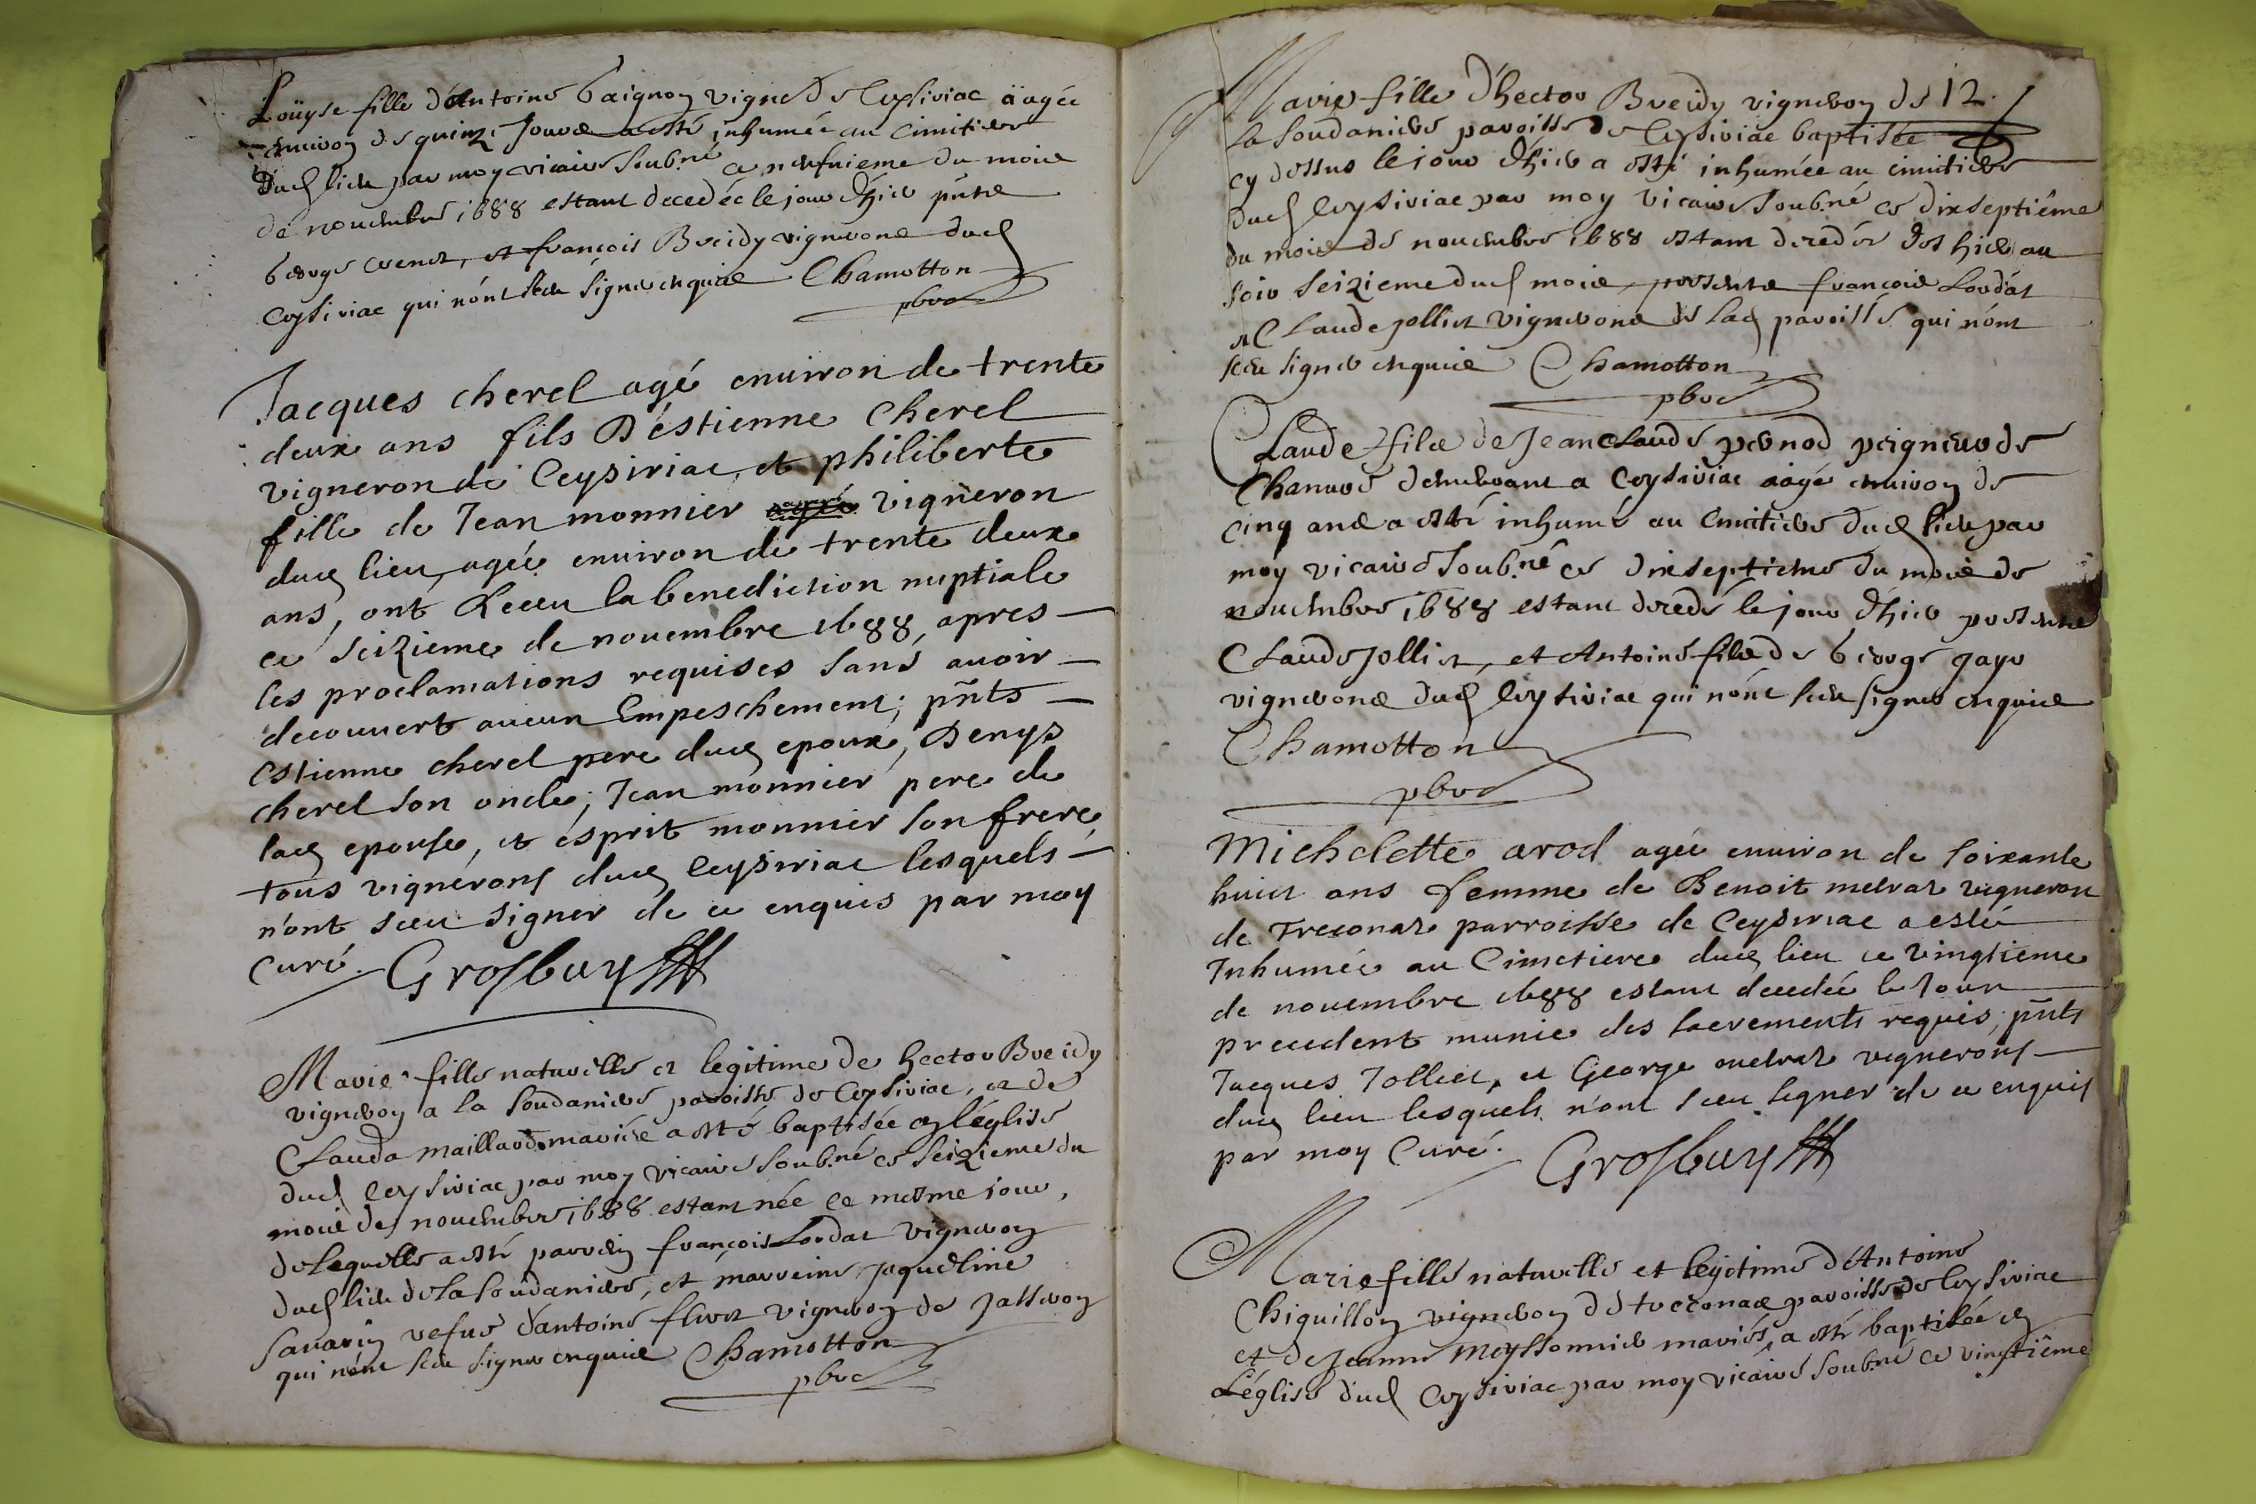 Loüyse fille d'Antoine Gaignon vigner de Ceysiriac aagée
environ de quinze jours a esté inhumée au cimitiere
dud lieu par moy vicaire soub.né ce neufuieme du mois
de nouembre 1688 estant decedée le jour d'hier pnts
George et françois Breidy vignerons dud
Ceysiriac qui n'ont sceu signer enquis Chamotton
pbre
Jacques cherel agé enuiron de trente
deux ans fils D'éstienne Cherel
vigneron de Ceysiriac, et philiberte
fille de Jean monnier vigneron
dud lieu, agée enuiron de trente deux
ans, ont Receu la benediction nuptiale
ce seizieme de nouembre 1688, apres
les proclamations requises sans auoir
decouuert aucun Empeschement; pnts
Estienne cherel pere dud epoux, Denys
cherel son oncle; Jean monnier pere de
lad epouse, et ésprit monnier son frere,
tous vignerons dud Ceysiriac lesquels
n'ont sceu signer de ce enquis par moy
Curé. Grosbuy
Marie fille naturelle et legitime de hector Breidy
vigneron a la soudaniere paroisse de Ceysiriac, et de
Clauda maillard mariés a esté baptisée en l'église
dud Ceysiriac par moy vicaire soub.né ce seizieme du
mois de nouembre 1688 estant née ce mesme jour,
de laquelle a esté parrein françois Lordat vigneron
dud lieu de la soudaniere, et marreine Jaqueline
sauarin vefue d'antoine vigneron de Jasseron
qui n'ont sceu signer enquis Chamotton
pbre
Marie fille d'hector Breidy vigneron de 12
la soudaniere paroisse de Ceysiriac baptisée
cy dessus le jour d'hier a esté inhumée au cimitiere
dud Ceysiriac par moy vicaire soub.né ce dixseptième
du mois de nouembre 1688 estant decedée des hier au
soir seizieme dud mois, presents françois Lordat
et Claude Jolliet vignerons de lad paroisse qui n'ont
sceu signer enquis Chamotton
pbre
Claude fils de Jean Claude pernod peigneur de
Chanure demeurant a Ceysiriac aagé enuiron de
cinq ans a esté inhumé au cimitiere dud lieu par
moy vicaire soub.né ce dixseptieme du mois de
nouembre 1688 estant decedé le jour d'hier presents
Claude Jolliet, et Antoine fils de George
vignerons dud Ceysiriac qui n'ont sceu signer enquis
Chamotton
pbre
Michelette arod agée enuiron de soixante
huict ans femme de Benoit metraz vigneron
de Treconaz parroisse de Ceysiriac a esté
Inhumée au Cimetiere dud lieu ce vingtieme
de nouembre 1688 estant decedée le Jour
precedent munie des sacrements requis; pnts
Jacques Jolliet, et George metraz vignerons
dud lieu lesquels n'ont sceu signer de ce enquis
par moy Curé. Grosbuy
Marie fille naturelle et legitime d'Antoine
Chiquillon vigneron de treconas paroisse de Ceysiriac
et de Jeanne Meyssonnier mariés, a esté baptisée en
L'église dud Ceysiriac par moy vicaire soub.né ce vingtième